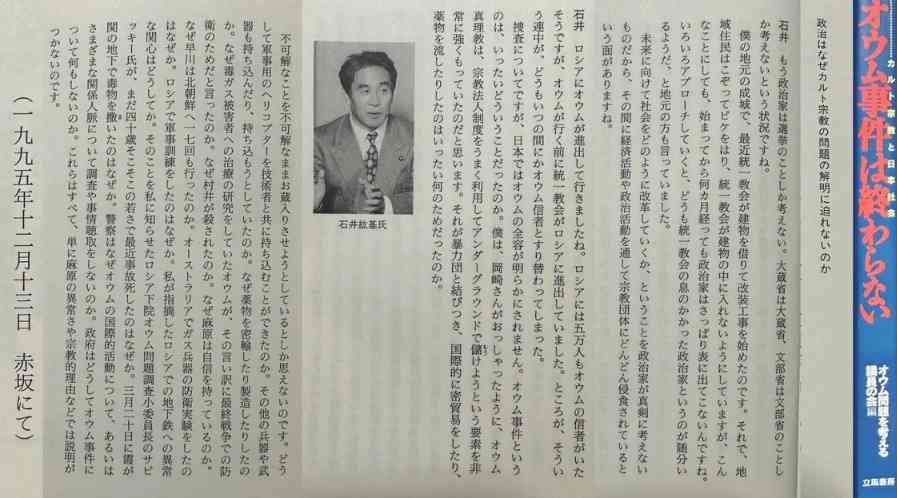 カルト宗教と日本社会
オウム事件は終わらない
オウム問題を考える
議員の会編
立風書房
政治はなぜカルト宗教の問題の解明に迫れないのか
石井　もう政治家は選挙のことしか考えない。大蔵省は大蔵省、文部省は文部省のことし
か考えないという状況ですね。
僕の地元の成城で、最近統一教会が建物を借りて改装工事を始めたのです。それで、地
域住民はこぞってピケをはり、統一教会が建物の中に入れないようにしていますが、こん
なことにしても、始まってから何カ月経っても政治家はさっぱり表に出てこないんですね。
いろいろアプローチしていくと、どうも統一教会の息のかかった政治家というのが随分い
るようだ、と地元の方も言っていました。
未来に向けて社会をどのように改革していくか、ということを政治家が真剣に考えない
ものだから、その間に経済活動や政治活動を通して宗教団体にどんどん侵食されていると
いう面がありますね。
石井　ロシアにオウムが進出して行きましたね。ロシアには五万人もオウムの信者がいた
そうですが、オウムが行く前に統一教会がロシアに進出していました。ところが、そうい
う連中が、どうもいつの間にかオウム信者とすり替わってしまった。
捜査についてですが、日本ではオウムの全容が明らかにされません。オウム事件という
のは、いったいどういうことだったのか。僕は、岡崎さんがおっしゃったように、オウム
真理教は、宗教法人制度をうまく利用してアンダーグラウンドで儲けようという要素を非
常に強くもっていたのだと思います。それが暴力団と結びつき、国際的に密貿易をしたり、
薬物を流したりしたのはいったい何のためだったのか。
石井紘基氏
不可解なことを不可解なままお蔵入りさせようとしているとしか思えないのです。どう
して軍事用のヘリコプターを技術者と共に持ち込むことができたのか。その他の兵器や武
器も持ち込んだり、持ち込もうとしていたのか。なぜ薬物を密輸したり製造したりしたの
か。なぜ毒ガス被害者への治療の研究をしていたオウムが、その言い訳に最終戦争での防
衛のためだと言ったのか。なぜ村井が殺されたのか。なぜ麻原は自信を持っているのか。
なぜ早川は北朝鮮へ十七回も行ったのか。オーストラリアでガス兵器の防衛実験をしたの
はなぜか。ロシアで軍事訓練をしたのはなぜか。私が指摘したロシアでの地下鉄への異常
な関心はどうしてか。そのことを私に知らせたロシア下院オウム問題調査小委員長のサビ
ッキー氏が、まだ四十歳そこそこの若さで最近事故死したのはなぜか。三月二十日に霞が
関の地下で毒物を撒いたのはなぜか。警察はなぜオウムの国際的活動について、あるいは
さまざまな関係人脈について調査や事情聴取をしないのか。政府はどうしてオウム事件に
ついて何もしないのか。これらはすべて、単に麻原の異常さや宗教的理由などでは説明が
つかないのです。
（一九九五年十二月十三日　赤坂にて）